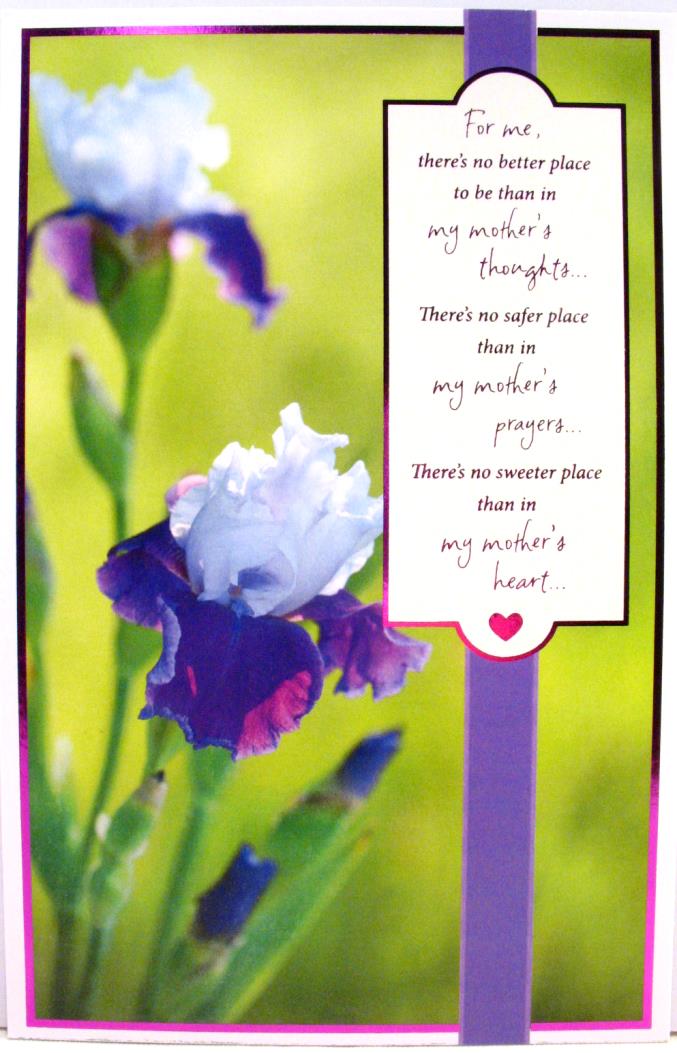 For me,
there's no better place
to be than in
my mother's
thoughts...
There's no safer place
than in
my mother's
prayers...
There's no sweeter place
than in
my mother's
heart...